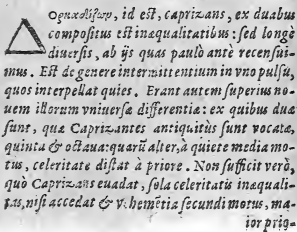 Δορκαδίζων, id est, caprizans, ex duabus
compositus est inæqualitatibus: sed longè
diuersis, ab ijs quas paulò antè recensui-
mus. Est de genere intermittentium in vno pulsu,
quos interpellat quies. Erant autem superius no-
uem illorum vniuersæ differentiæ: ex quibus duæ
sunt, quæ Caprizantes antiquitùs sunt vocatæ,
quinta & octaua: quarū alter, à quiete media mo-
tus, celeritate distat à priore. Non sufficit verò,
quò Caprizans euadat, sola celeritatis inæquali-
tas, nisi accedat & vehemētia secundi motus, ma-
ior priq-